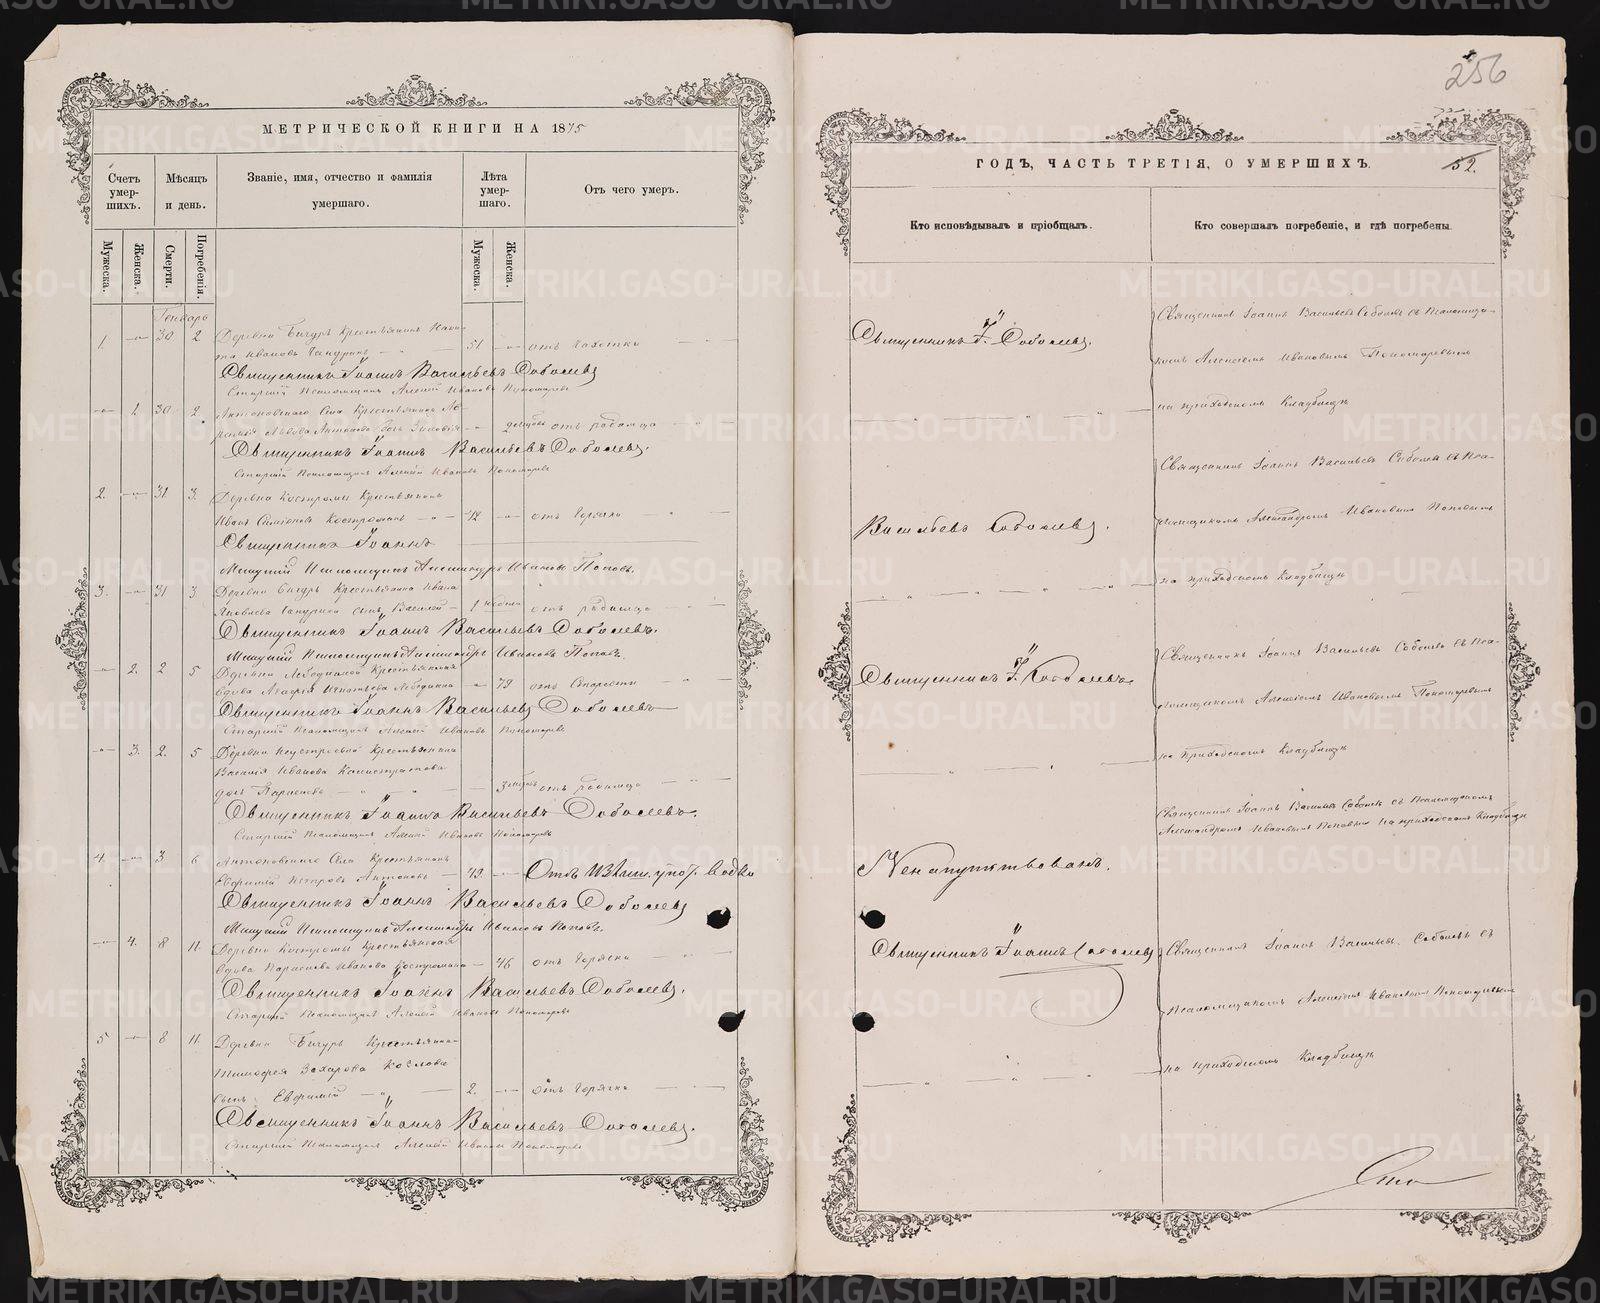 256
МЕТРИЧЕСКОЙ КНИГИ НА 1875
Счетъ умершихъ.
Мѣсяцъ и день.
Званіе, имя, отчество и фамилія умершаго.
Лѣта умершаго.
Отъ чего умеръ.
Мужеска.
Женска.
Смерти.
Погребенія.
Мужеска.
Женска.
Генварь
1 30 2 Деревни Бигуръ Крестьянинъ
Ивановъ 51 отъ чахотки
Священникъ Іоаннъ Васильевъ Соболевъ
Старшій Псаломщикъ Алексей Ивановъ Пономаревъ
1 30 2 Антоновскаго Села Крестьянина
Антонова дочь Зиновія 2 отъ родимца
Священникъ Іоаннъ Васильевъ Соболевъ.
Старшій Псаломщикъ Алексей Ивановъ Пономаревъ
2. 31 3. Деревни Костромы Крестьянинъ
Иванъ 42 отъ Горячки
Священникъ Іоаннъ
Младшій Псаломщикъ Александръ Ивановъ Поповъ.
3. 31 3 Деревни Бигуръ Крестьянина Ивана
Яковлева сынъ Василій 1 отъ родимца
Священникъ Іоаннъ Васильевъ Соболевъ.
Младшій Псаломщикъ Александръ Ивановъ Поповъ.
2. 2 5 Деревни Лебедкиной Крестьянская
вдова Агафія Игнатьева Лебедкина 79 отъ Старости
Священникъ Іоаннъ Васильевъ Соболевъ
Старшій Псаломщикъ Алексей Ивановъ Пономаревъ
3. 2. 5 Деревни Крестьянина
Василія Иванова
дочь 3 отъ родимца
Священникъ Іоаннъ Васильевъ Соболевъ.
Старшій Псаломщикъ Алексей Ивановъ Пономаревъ
4. 3 6 Антоновскаго Села Крестьянинъ
Евфимій Петровъ Антоновъ 49 Отъ Излиш. упот. водки
Священникъ Іоаннъ Васильевъ Соболевъ
Младшій Псаломщикъ Александръ Ивановъ Поповъ.
4. 8 11. Деревни Костромы Крестьянская
вдова Параскева Иванова Костромина 46 отъ Горячки
Священникъ Іоаннъ Васильевъ Соболевъ.
Старшій Псаломщикъ Алексей Ивановъ Пономаревъ
5 8 11. Деревни Бигуръ Крестьянина
Тимофея Захарова Козлова
сынъ Евфимій 2. отъ Горячки
Священникъ Іоаннъ Васильевъ Соболевъ.
Старшій Псаломщикъ Алексей Ивановъ Пономаревъ
ГОДЪ, ЧАСТЬ ТРЕТІЯ, О УМЕРШИХЪ.
52.
Кто исповѣдывалъ и пріобщалъ.
Кто совершалъ погребеніе, и гдѣ погребены.
Священникъ І. Соболевъ.
Священникъ Іоаннъ Васильевъ Соболевъ съ Псаломщи-
комъ Алексѣемъ Ивановымъ Пономаревымъ
на приходскомъ Кладбищѣ
Васильевъ Соболевъ.
Священникъ Іоаннъ Васильевъ Соболевъ съ Пса-
ломщикомъ Александромъ Ивановымъ Поповымъ
на приходскомъ Кладбищѣ
Священникъ І. Соболевъ.
Священникъ Іоаннъ Васильевъ Соболевъ съ Пса-
ломщикомъ Алексѣемъ Ивановымъ Пономаревымъ
на приходскомъ Кладбищѣ
Ненапутствованъ.
Священникъ Іоаннъ Васильевъ Соболевъ съ Псаломщикомъ
Александромъ Ивановымъ Поповымъ на приходскомъ Кладбищѣ
Священникъ Іоаннъ Соболевъ
Священникъ Іоаннъ Васильевъ Соболевъ съ
Псаломщикомъ Алексѣемъ Ивановымъ Пономаревымъ
на приходскомъ Кладбищѣ
METRIKI.GASO-URAL.RU